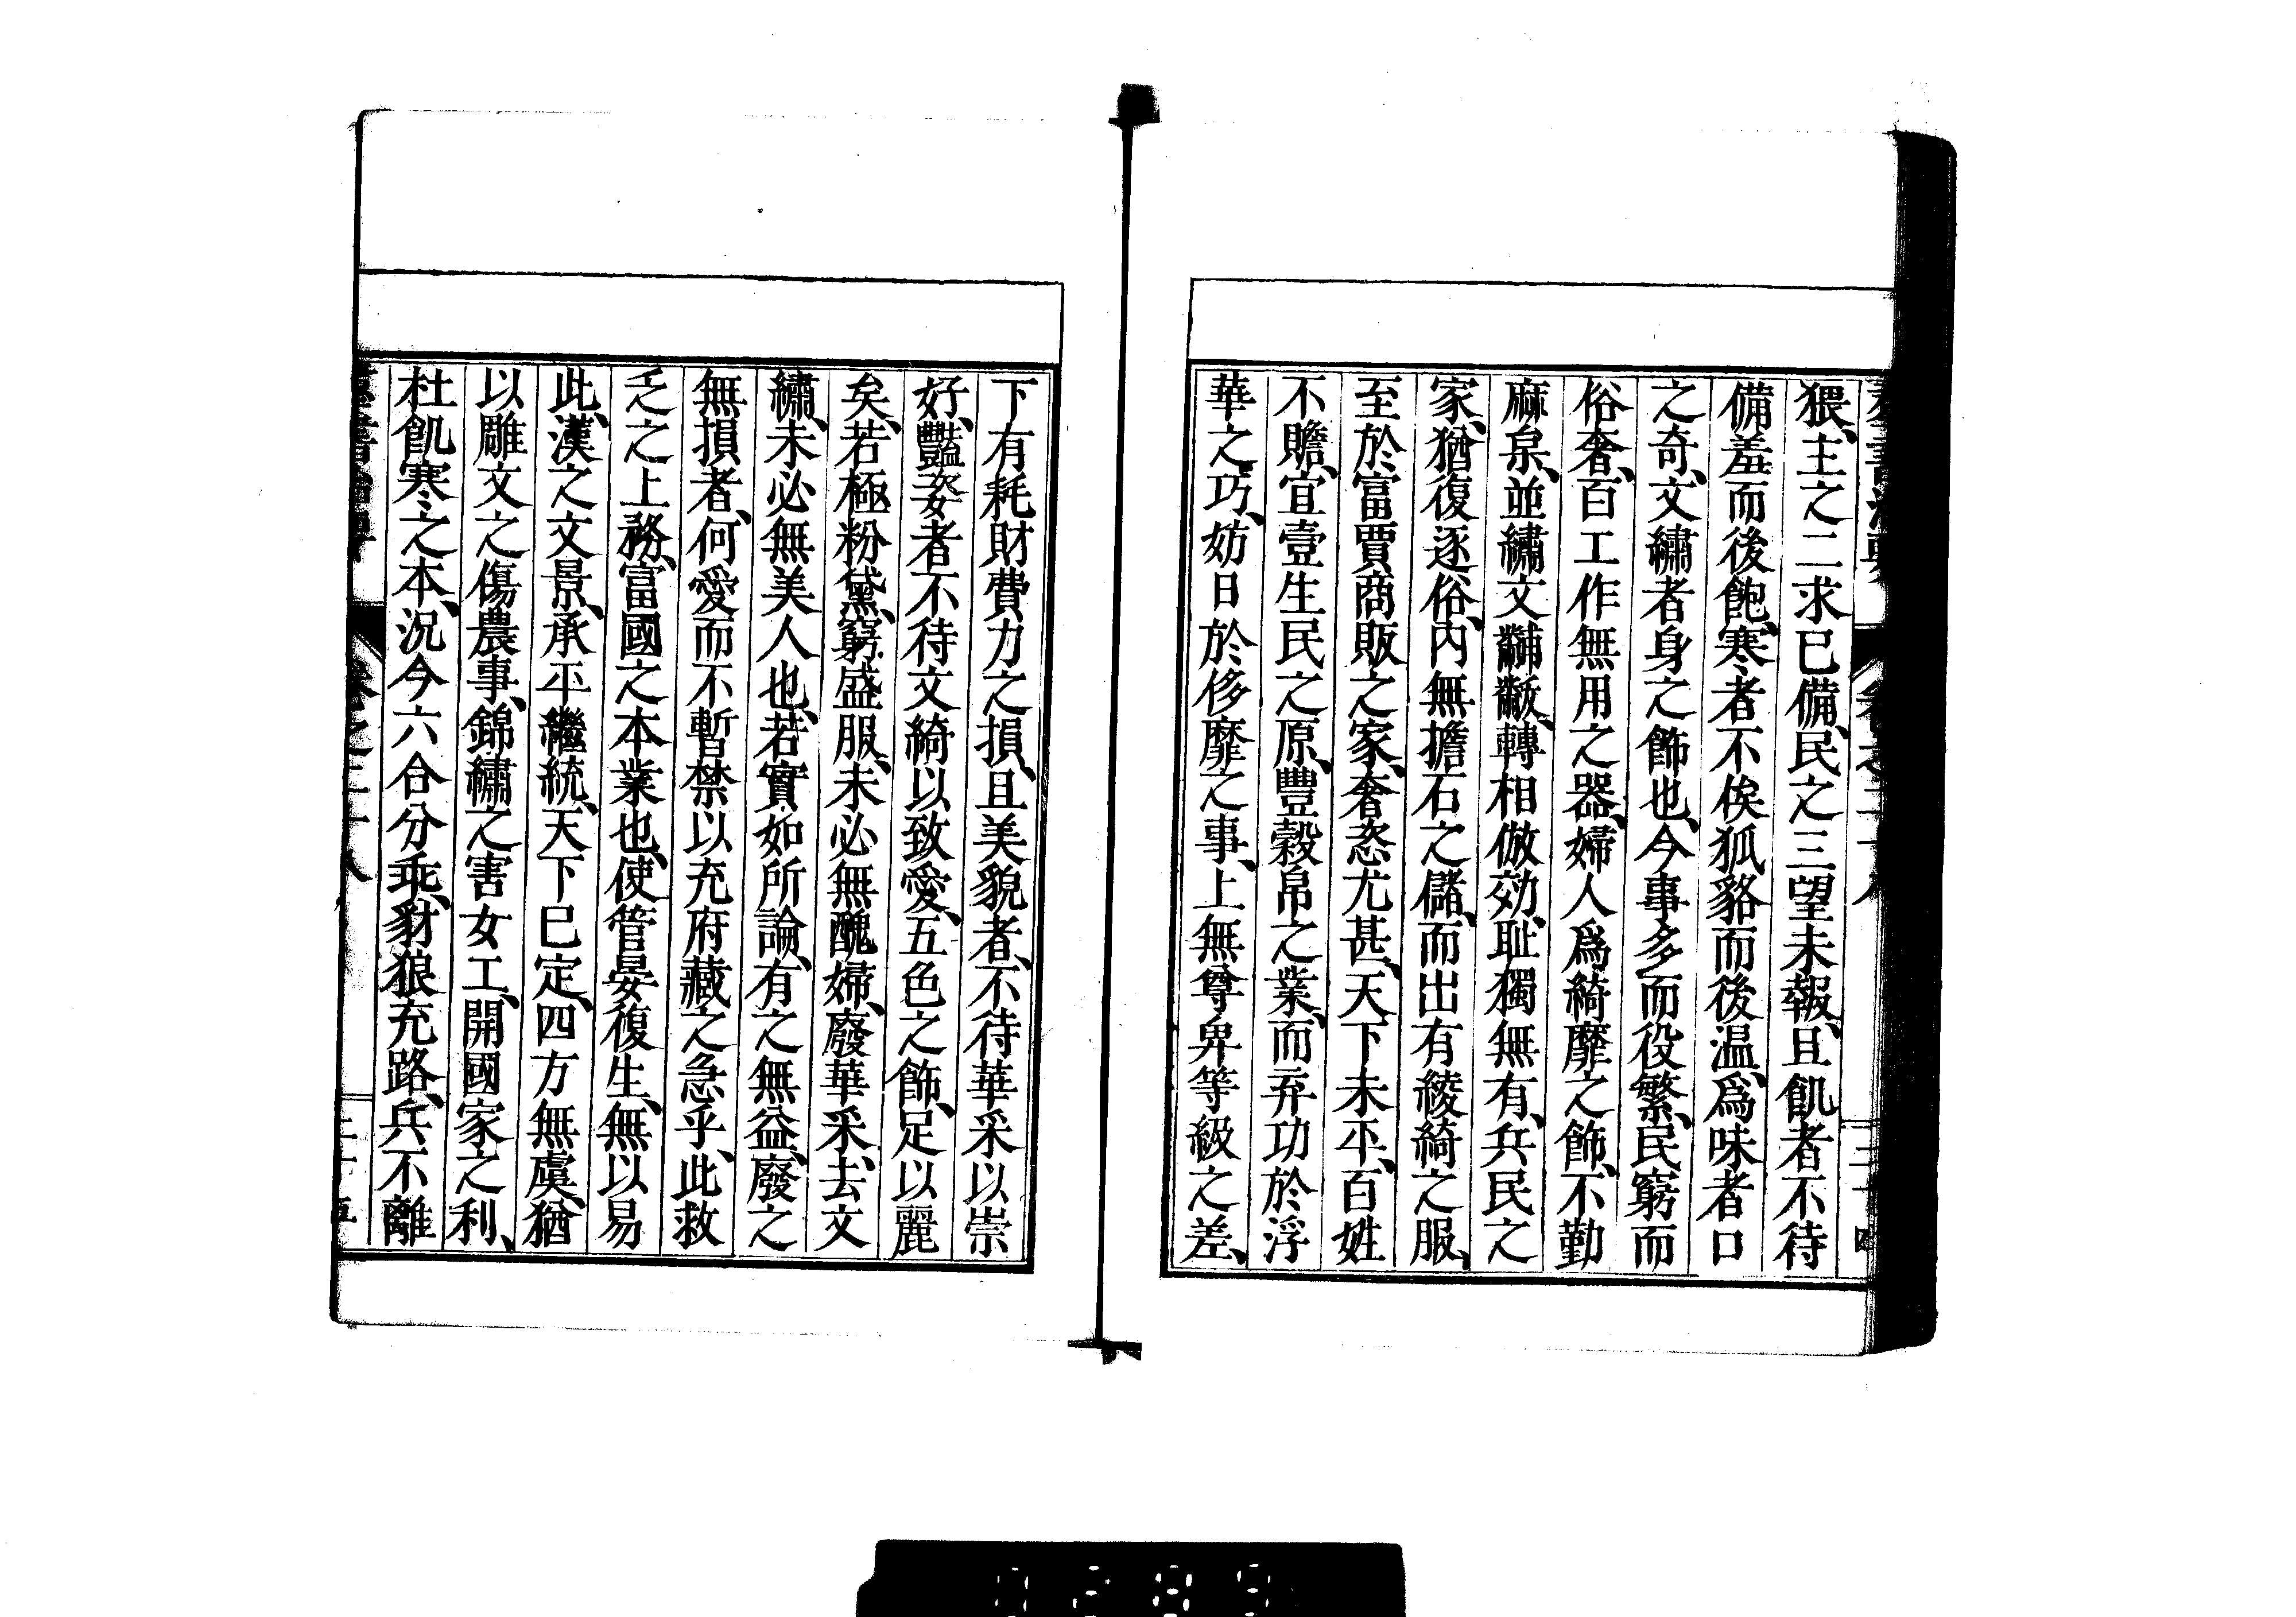 猥、主之二求已備、民之三望未報、且飢者不待
備羞而後飽、寒者不俟狐貉而後温、爲味者口
之奇、文繡者身之飾也、今事多而役繁、民窮而
俗奢、百工作無用之器、婦人爲綺靡之飾、不勤
麻枲、並繡文黼黻、轉相倣効、耻獨無有、兵民之
家、猶復逐俗、内無擔石之儲、而出有綾綺之服、
至於富賈商販之家、奢恣尤甚、天下未平、百姓
不贍、宜壹生民之原、豐穀帛之業、而弃功於浮
華之巧、妨日於侈靡之事、上無尊卑等級之差、
下有耗財費力之損、且美貌者、不待華采以崇
好、豔姿者不待文綺以致愛、五色之飾、足以麗
矣、若極粉黛、窮盛服、未必無醜婦、廢華采、去文
繡、未必無美人也、若實如所論、有之無益、廢之
無損者、何愛而不暫禁以充府藏之急乎、此救
乏之上務、富國之本業也、使管晏復生、無以易
此、漢之文景、承平繼統、天下已定、四方無虞、猶
以雕文之傷農事、錦繡之害女工、開國家之利、
杜飢寒之本、況今六合分乖、豺狼充路、兵不離